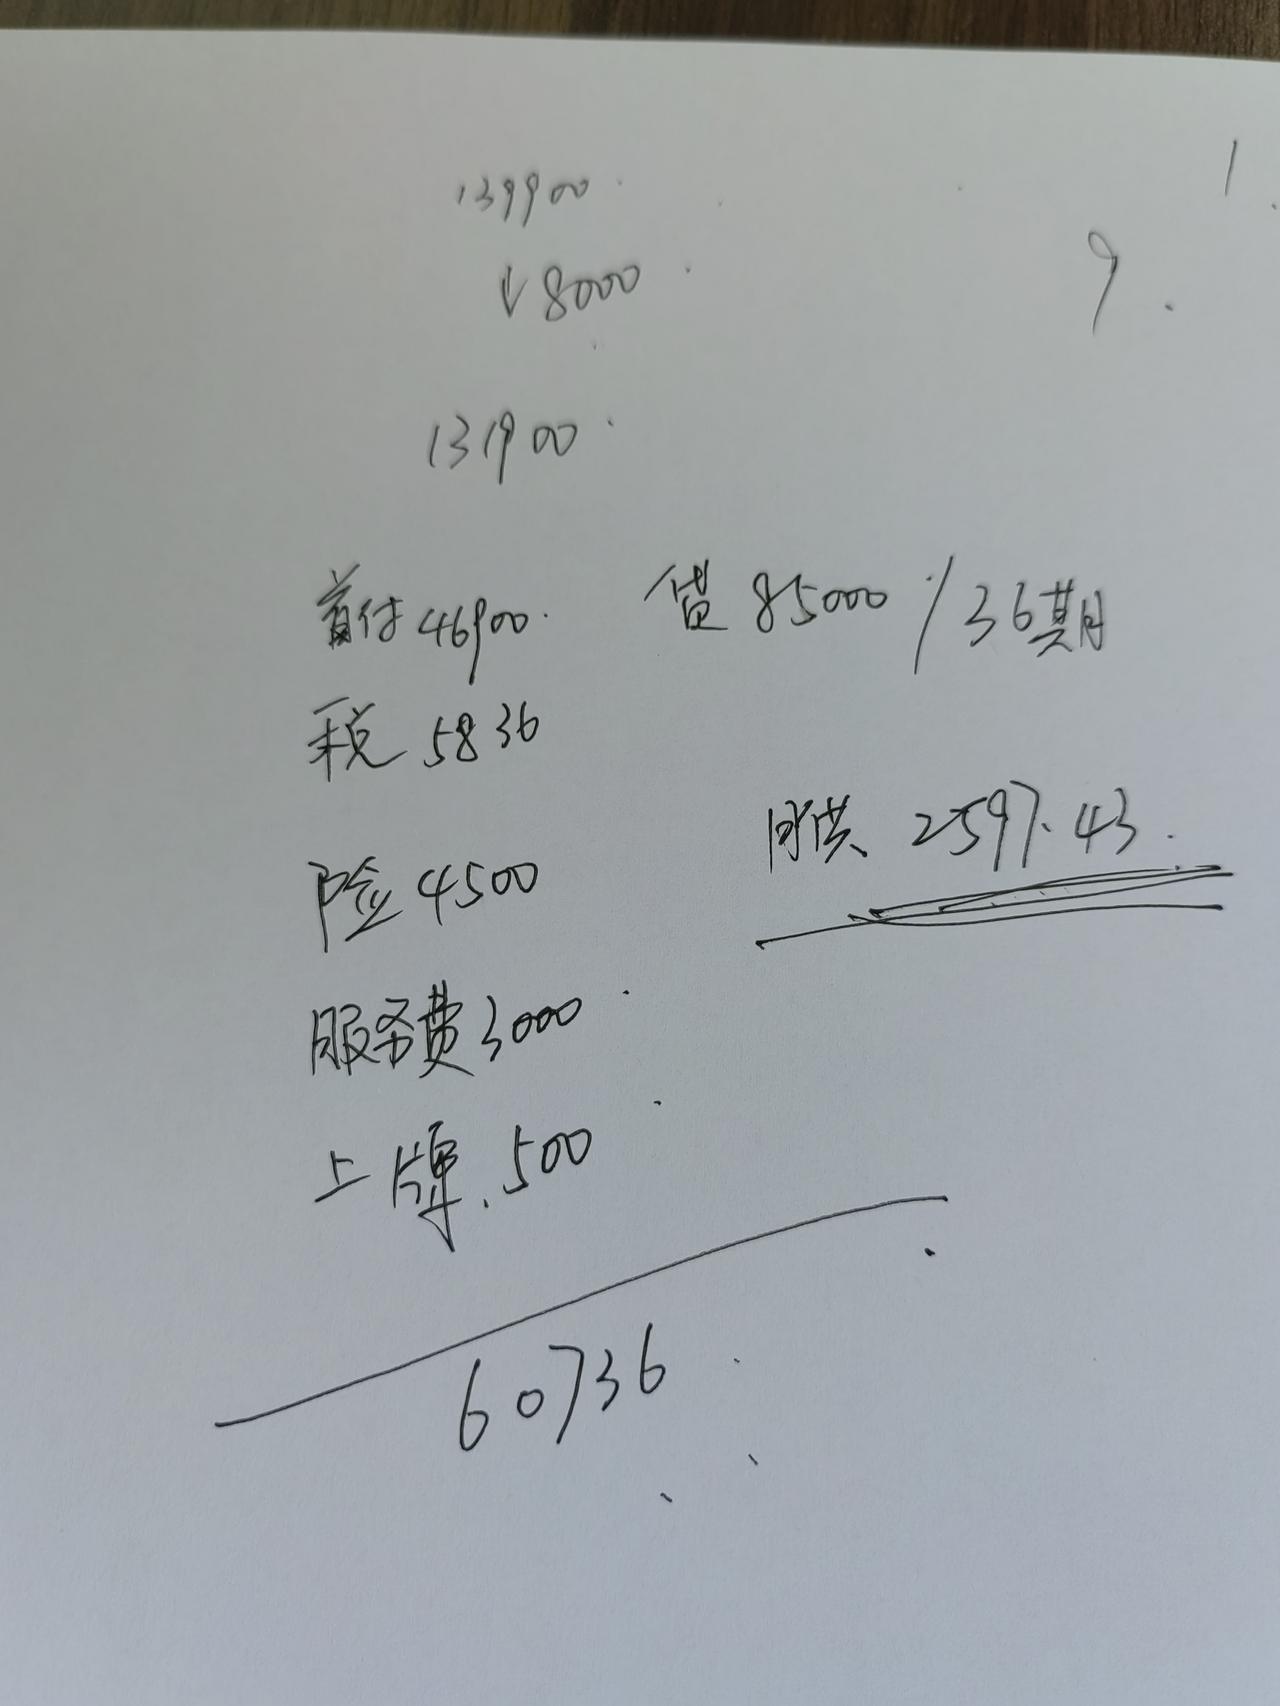 1
139900
9
↓8000
131900
首付46900 贷85000/36期
税5836
月供 2597.43
险4500
服务费3000
上牌.500
60736